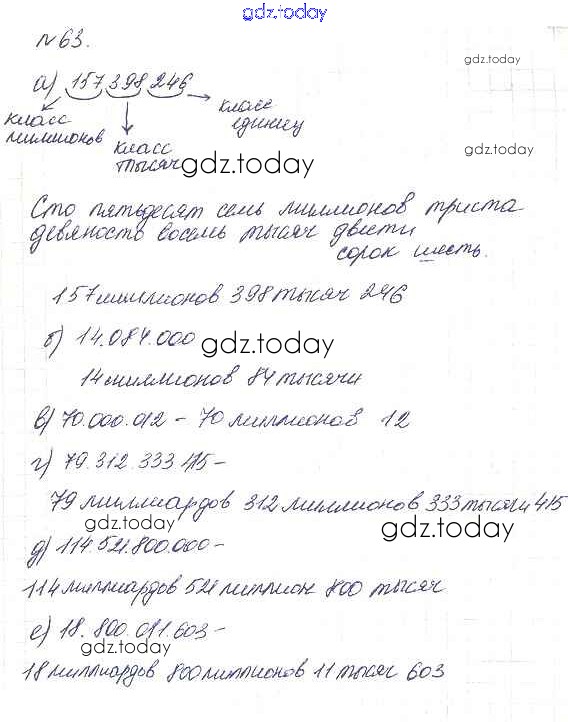 gdz.today
№63.
gdz.today
а) 157 398 246
класс миллионов
класс тысяч
класс единиц
gdz.today
gdz.today
Сто пятьдесят семь миллионов триста
девяносто восемь тысяч двести
сорок шесть.
157 миллионов 398 тысяч 246
б) 14.084.000
gdz.today
14 миллионов 84 тысячи
в) 70.000.012 - 70 миллионов 12
г) 79.312.333 415 -
79 миллиардов 312 миллионов 333 тысячи 415
gdz.today
gdz.today
д) 114.521.800.000 -
114 миллиардов 521 миллион 800 тысяч
е) 18.800.011.603 -
gdz.today
18 миллиардов 800 миллионов 11 тысяч 603